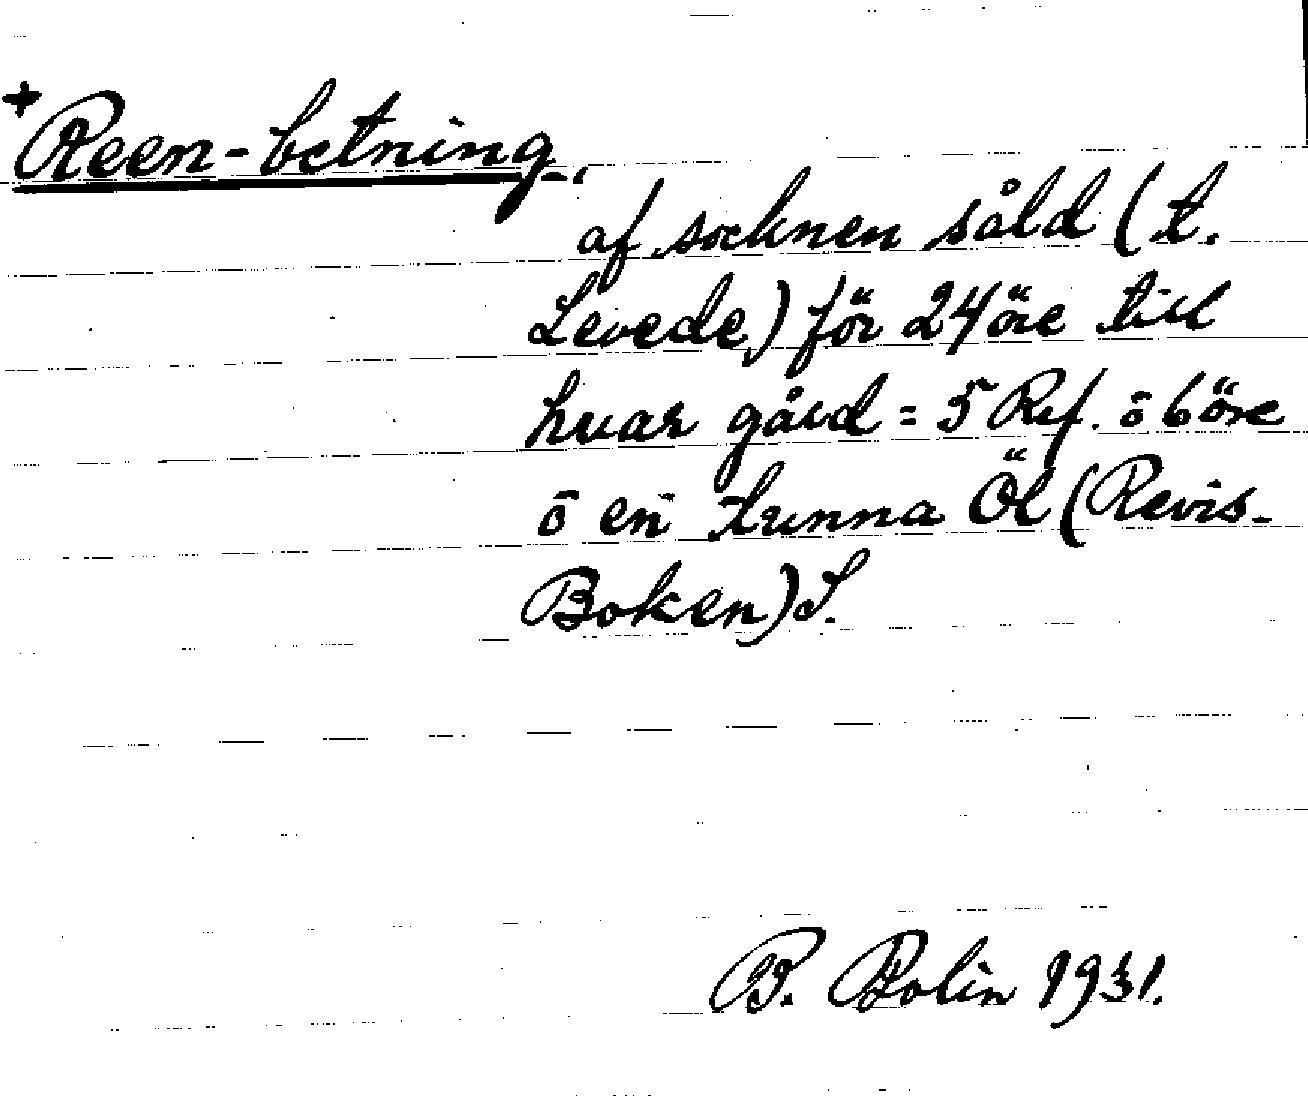 +
Reen-betning.,
af socknen såld (t.
Levede) för 24 öre till
hvar gård = 5 Rf. ō 6 öre
ō en tunna Öl (Revis-
Boken) S.
B. Bolin 1931.